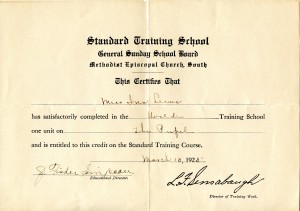 Standard Training School
General Sunday School Board
Methodist Episcopal Church, South
This Certifies That
Miss
has satisfactorily completed in the Training School
one unit on The Pupil
and is entitled to this credit on the Standard Training Course.
March 10, 192
J. Fisher Simpson
Educational Director.
L. F. Sensabaugh
Director of Training Work.